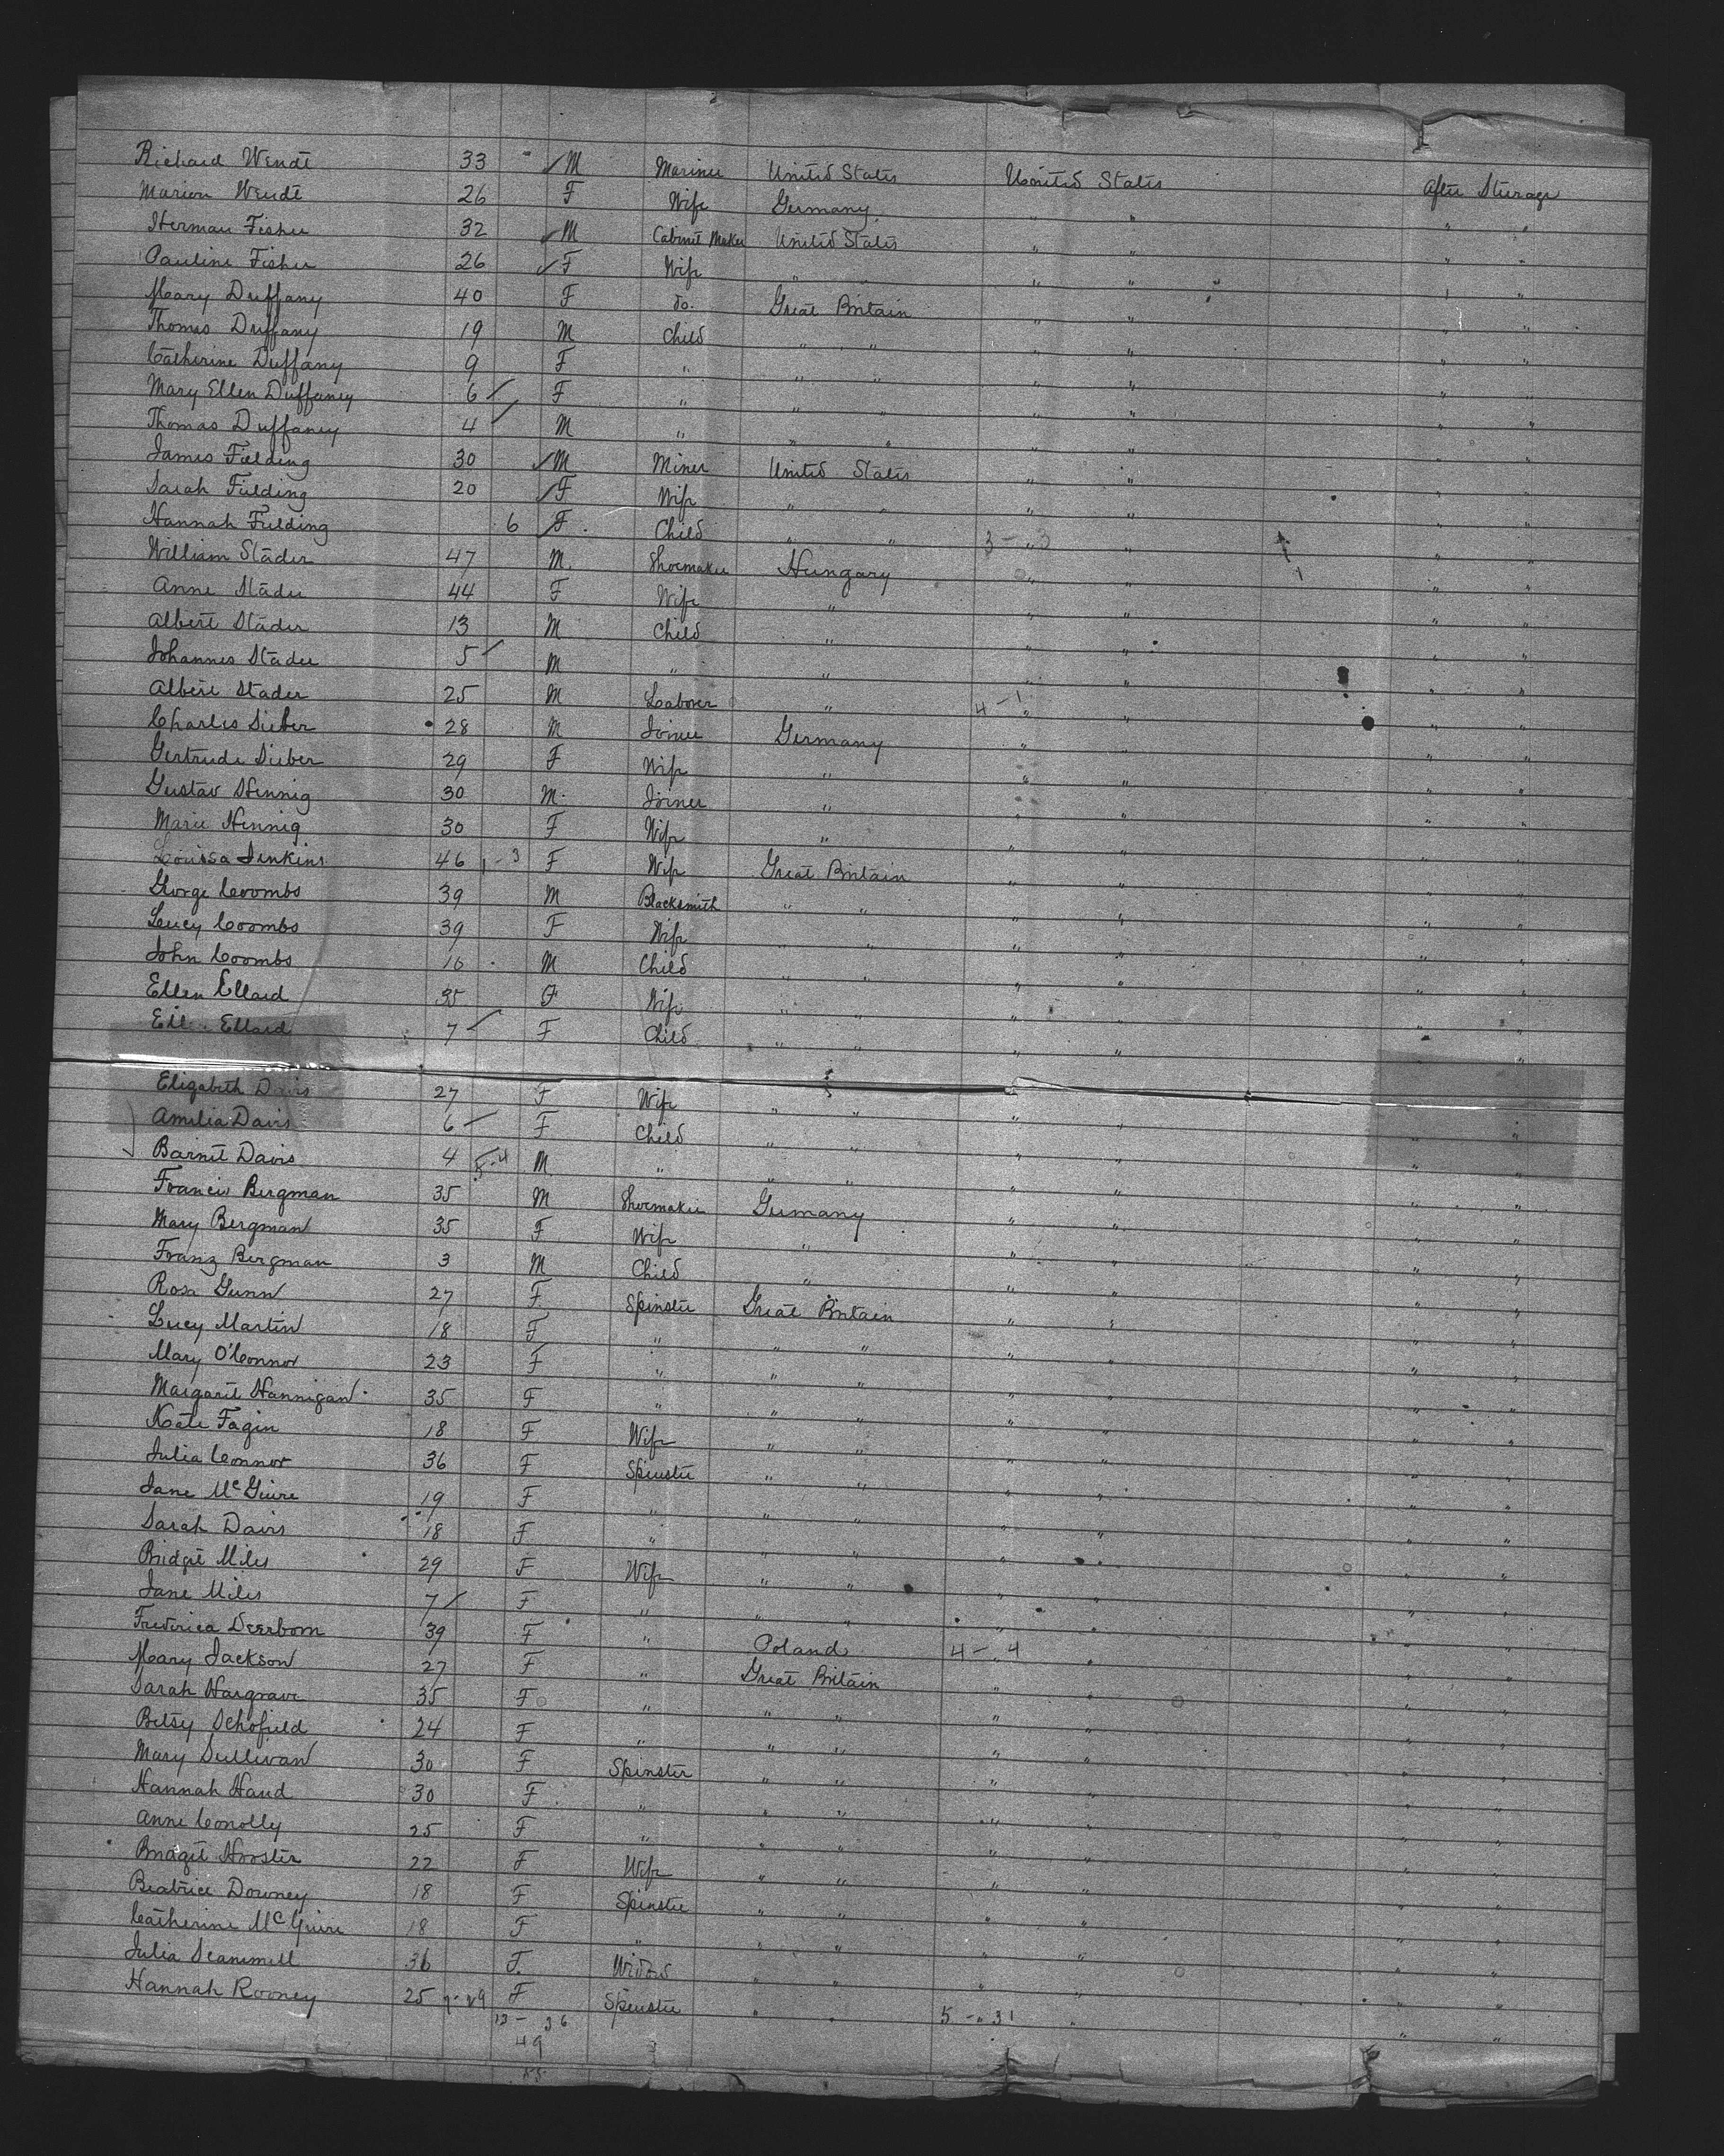 Richard Wendt 33 " ✓ M Mariner United States United States After Sturage
Marion Wendt 26 F Wife Germany " " " "
Herman Fisher 32 ✓ M Cabinet Maker United States " " " "
Pauline Fisher 26 ✓ F Wife " " " " " "
Mary Duffany 40 F do. Great Britain " " " "
Thomas Duffany 19 M Child " " " " " "
Catherine Duffany 9 F " " " " " " "
Mary Ellen Duffaney 6 ✓ F " " " " " " "
Thomas Duffaney 4 ✓ M " " " " " " "
James Fielding 30 ✓ M Miner United States " " " "
Sarah Fielding 20 ✓ F Wife " " " " " "
Hannah Fielding 6 ✓ F Child " " 3 - 3 " " " "
William Stader 47 M. Shoemaker Hungary " " " "
Anne Stader 44 F Wife " " " " "
Albert Stader 13 M Child " " " " "
Johannes Stader 5 ✓ M " " " " " "
Albert Stader 25 M Laborer " 4 - 1 " " " "
Charles Sieber 28 M Joiner Germany " " " "
Gertrude Sieber 29 F Wife " " " " "
Gustav Hennig 30 M. Joiner " " " " "
Marie Hennig 30 F Wife " " " " "
Louisa Jenkins 46 1 - 3 F Wife Great Britain " " " "
George Coombs 39 M Blacksmith " " " " " "
Lucy Coombs 39 F Wife " " " " " "
John Coombs 16 M Child " " " " " "
Ellen Ellard 35 F Wife " " " " " "
Ellard 7 ✓ F Child " " " " " "
Elizabeth Davis 27 F Wife " " " " " "
Amelia Davis 6 ✓ F Child " " " " " "
Barnet Davis 4 5-4 M " " " " " " "
Francis Bergman 35 M Shoemaker Germany " " " "
Mary Bergman 35 F Wife " " " " "
Franz Bergman 3 M Child " " " " "
Rosa Gunn 27 F Spinster Great Britain " " " "
Lucy Martin 18 F " " " " " " "
Mary O'Connor 23 F " " " " " " "
Margaret Hannigan 35 F " " " " " " "
Kate Fagin 18 F Wife " " " " " "
Julia Connor 36 F Spinster " " " " " "
Jane McGuire 19 F " " " " " " "
Sarah Davis 18 F " " " " " " "
Bridget Miles 29 F Wife " " " " " "
Jane Miles 7 ✓ F " " " " " " "
Frederica Deerbom 39 F " Poland 4 - 4 " " " "
Mary Jackson 27 F " Great Britain " " " "
Sarah Hargrave 35 F " " " " " " "
Betsy Schofield 24 F " " " " " " "
Mary Sullivan 30 F Spinster " " " " " "
Hannah Hand 30 F " " " " " " "
Anne Conolly 25 F " " " " " " "
Bridget 22 F Wife " " " " " "
Beatrice Downey 18 F Spinster " " " " " "
Catherine McGuire 18 F " " " " " " "
Julia Scammell 36 F. Widow " " " " " "
Hannah Rooney 25 F Spinster " " 5 - 31 " " " "
13 - 36
49